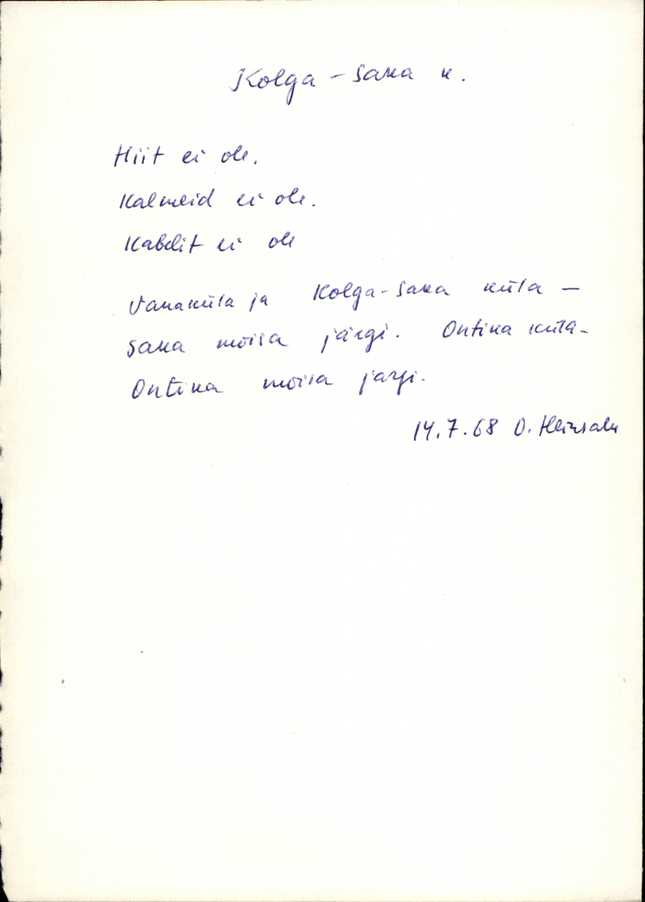 Kolga-Saka k.
Hiit ei ole.
Kalmeid ei ole.
Kabelit ei ole
Vanaküla ja Kolga-Saka küla –
Saka mõisa järgi. Ontika küla-
Ontika mõisa järgi.
14.7.68 O. Heinsalu